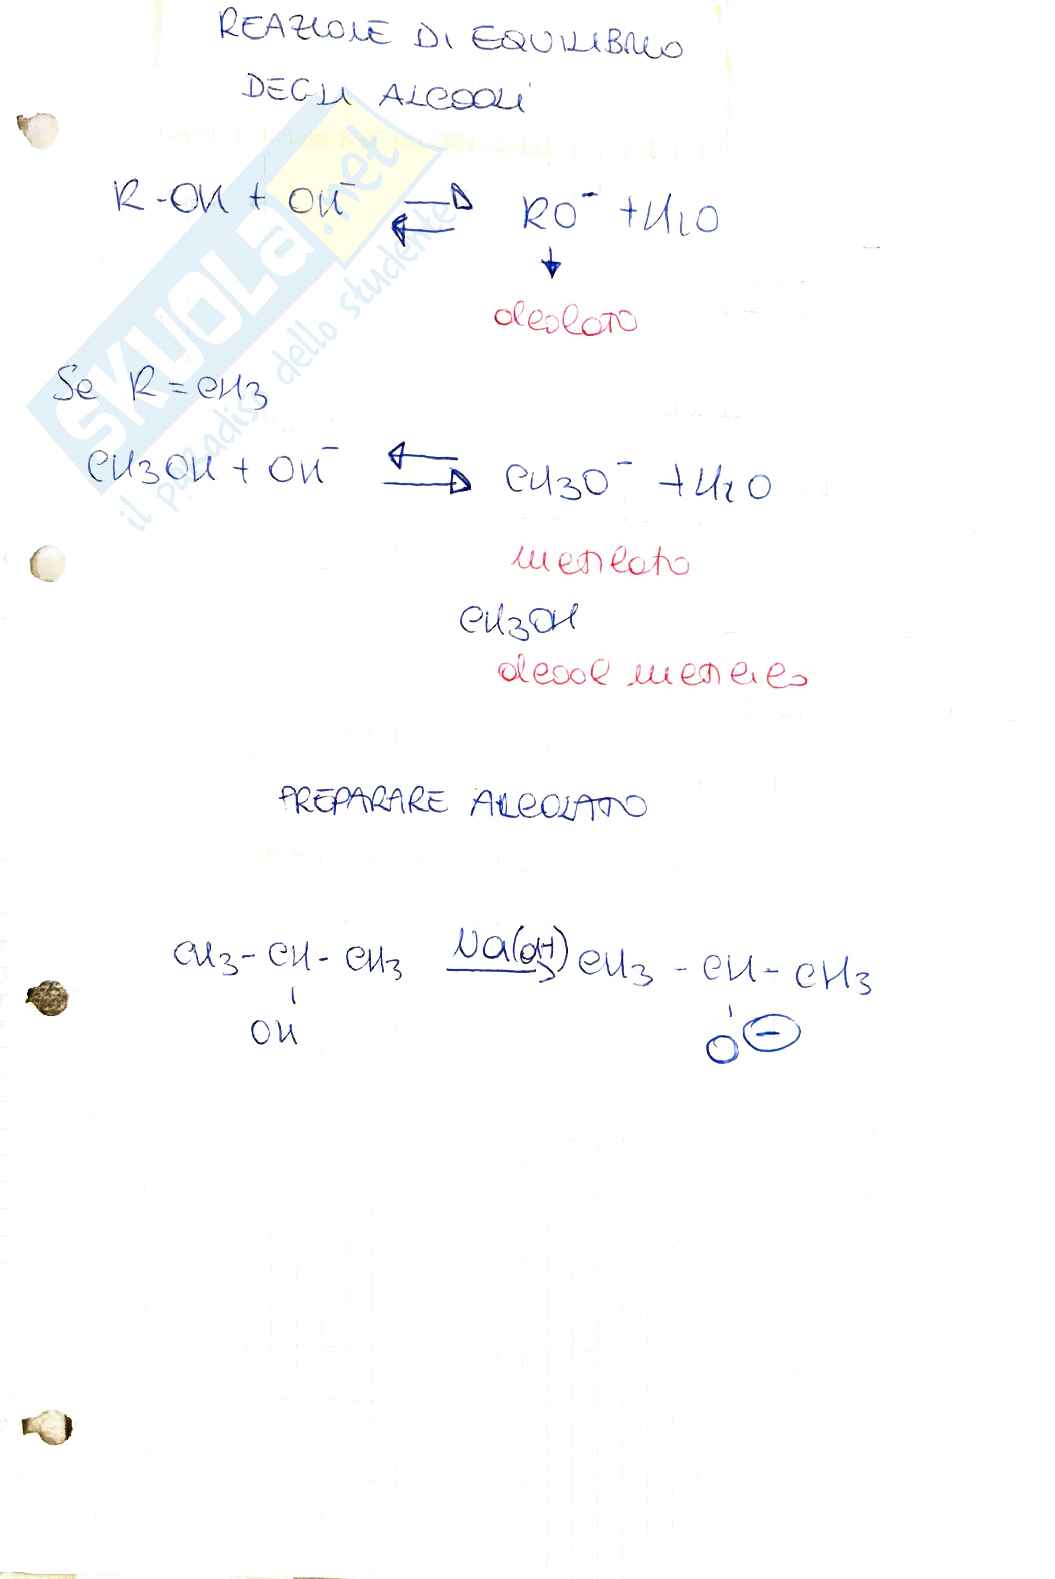 REAZIONE DI EQUILIBRIO
DEGLI ALCOOLI
R-OH + OH⁻ ⇌ RO⁻ + H₂O
↓
alcolato
Se R = CH3
CH3OH + OH⁻ ⇌ CH3O⁻ + H2O
metilato
CH3OH
alcool metilico
PREPARARE ALCOLATO
CH3 - CH - CH3 Na(OH) → CH3 - CH - CH3
OH O ⊖
SKUOLA.net
il paradiso dello studente